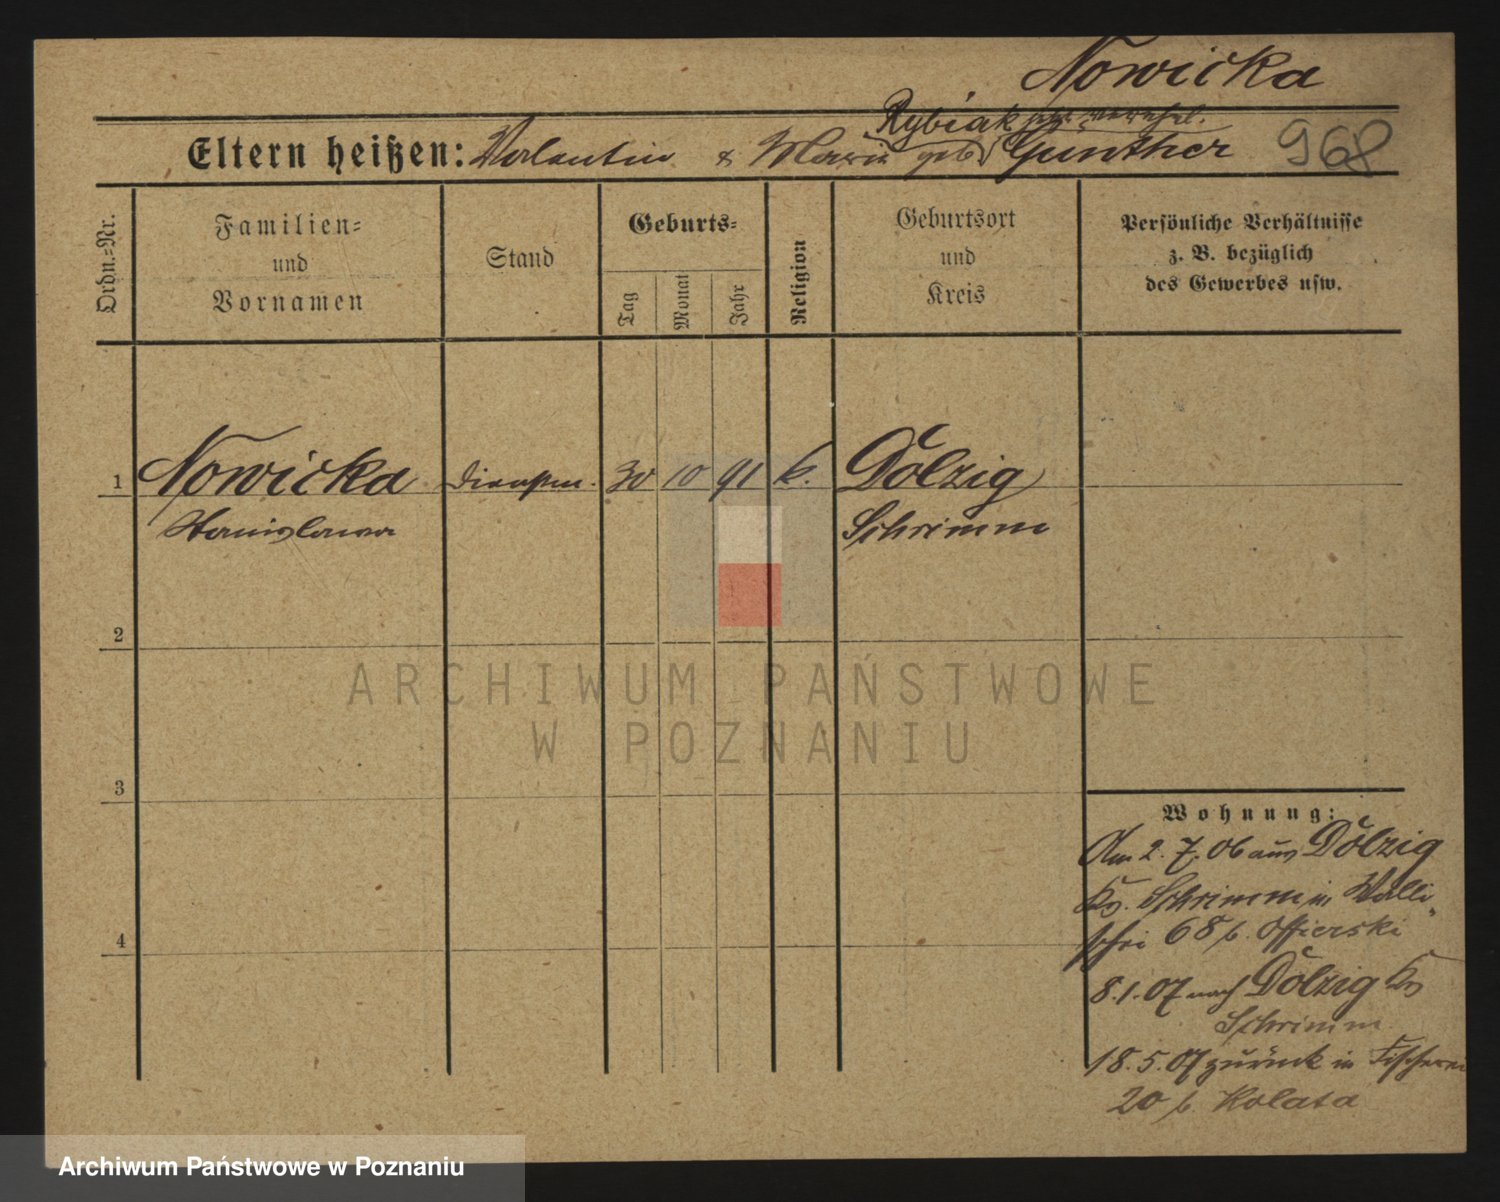 Nowicka
Rybiak
Eltern heißen: Valentin & Maria geb. Günther 968
Ordn.-Nr.
Familien- und Vornamen
Stand
Geburts-
Tag
Monat
Jahr
Religion
Geburtsort und Kreis
Persönliche Verhältnisse
z. B. bezüglich
des Gewerbes usw.
1 Nowicka 30 10 91 k. Dolzig
Stanislawa Schrimm
2
3
4
Wohnung:
Am 2. 7. 06 aus Dolzig
Kr. Schrimm in Walli-
schei 68 b. Offierski
8.1.07 nach Dolzig Kr
Schrimm
18.5.07 zurück in Fischerei
20 b Kolata
ARCHIWUM PAŃSTWOWE
W POZNANIU
Archiwum Państwowe w Poznaniu